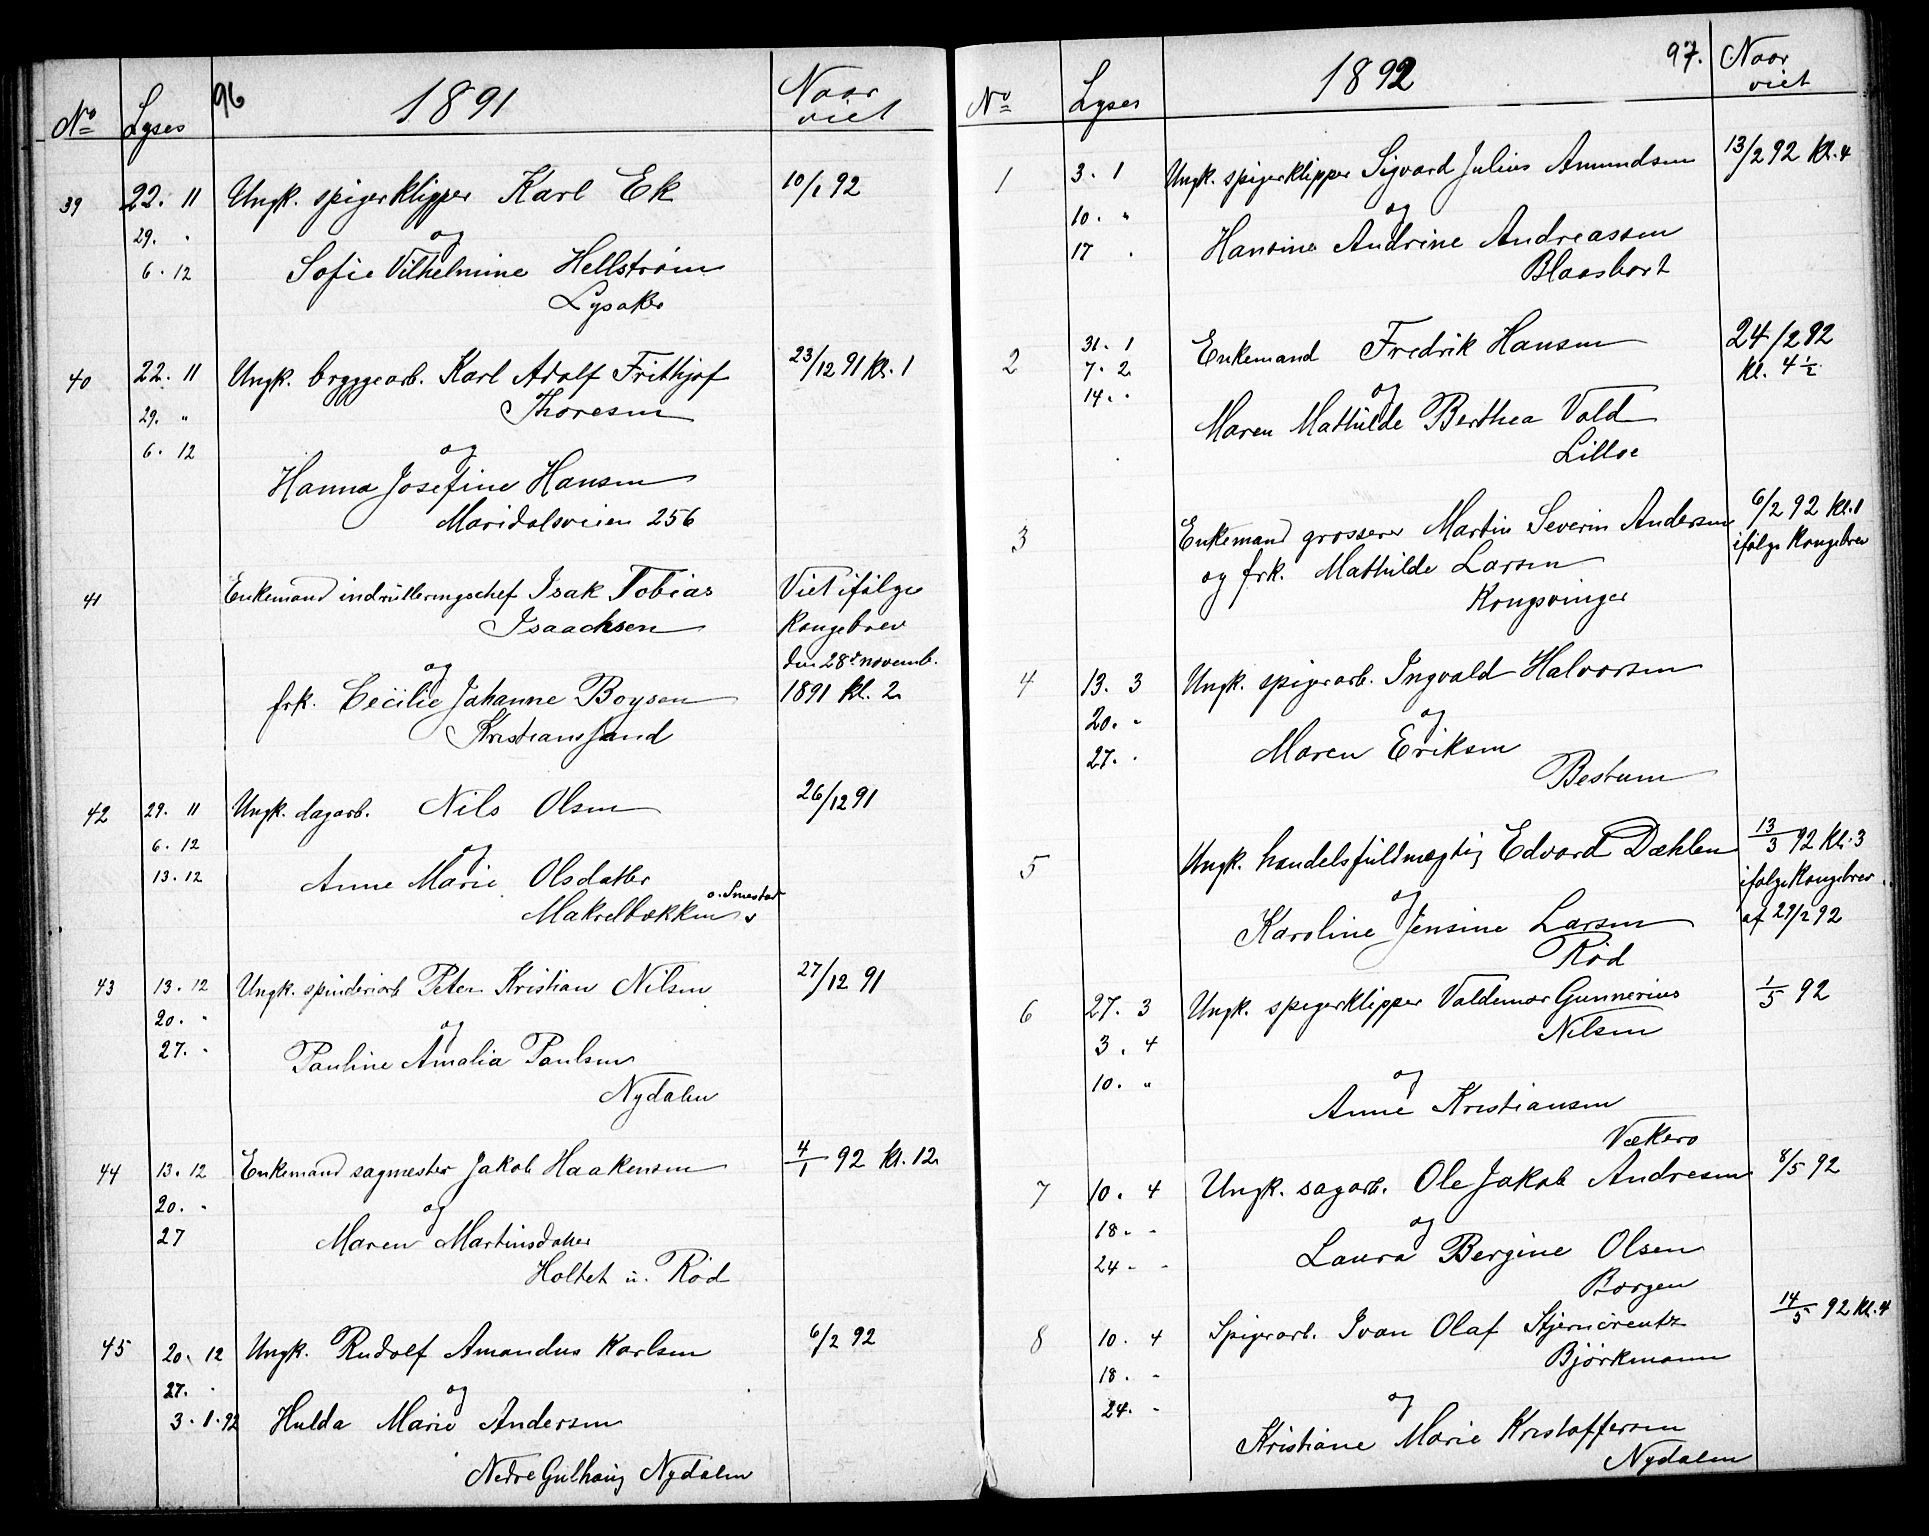 96
1891
No Lyses Naar viet
39 22. 11 Ungk. spigerklipper Karl Ek 10/1 92
29. " og
6. 12 Sofie Vilhelmine Hellstrøm
Lysaker
40 22. 11 Ungk. bryggearb. Karl Adolf Frithjof 23/12 91 kl. 1
29. " Thoresen
6. 12 og
Hanna Josefine Hansen
Maridalsveien 256
41 Enkemand indrulleringschef Isak Tobias Viet ifølge
Isaachsen Kongebrev
og den 28de novemb.
frk. Cecilie Johanne Boysen 1891 kl. 2
Kristianssand
42 29. 11 Ungk. dagarb. Nils Olsen 26/12 91
6. 12 og
13. 12 Anne Marie Olsdatter
o. Smestad
Makrelbækken
43 13. 12 Ungk. spinderiarb Peter Kristian Nilsen 27/12 91
20. " og
27. " Pauline Amalia Paulsen
Nydalen
44 13. 12 Enkemand sagmester Jakob Haakensen 4/1 92 kl. 12
20. " og
27 Maren Martinsdatter
Holtet u. Röd
45 20. 12 Ungk. Rudolf Amandus Karlsen 6/2 92
27. " og
3. 1. 92 Hulda Marie Andersen
Nedre Gulhaug Nydalen
97.
1892
No Lyses Naar viet
1 3. 1 Ungk. spigerklipper Sigvard Julius Amundsen 13/2 92 kl. 4
10. " og
17 " Hansine Andrine Andreassen
Blaasbort
2 31. 1 Enkemand Fredrik Hansen 24/2 92
7. 2 kl. 4 ½
14. " og
Maren Mathilde Berthea Vold
Lilloe
3 Enkemand grosserer Martin Severin Andersen 6/2 92 kl. 1
og frk. Mathilde Larsen ifølge Kongebrev
Kongsvinger
4 13. 3 Ungk. spigerarb. Ingvald Halvorsen
20. " og
27. " Maren Eriksen
Bestum
5 Ungk. handelsfuldmægtig Edvard Dæhlen 13/3 92 kl. 3
og ifølge Kongebrev
Karoline Jensine Larsen af 29/2 92
Röd
6 27. 3 Ungk. spigerklipper Valdemar Gunnerius 1/5 92
3. 4 Nilsen
10. " og
Anne Kristiansen
Vækerö
7 10. 4 Ungk. sagarb. Ole Jakob Andresen 8/5 92
18. " og
24 " Laura Bergine Olsen
Borgen
8 10. 4 Spigerarb. Ivan Olaf Stjerncreutz 14/5 92 kl. 4
18. " Björkmann
24. " og
Kristiane Marie Kristoffersen
Nydalen